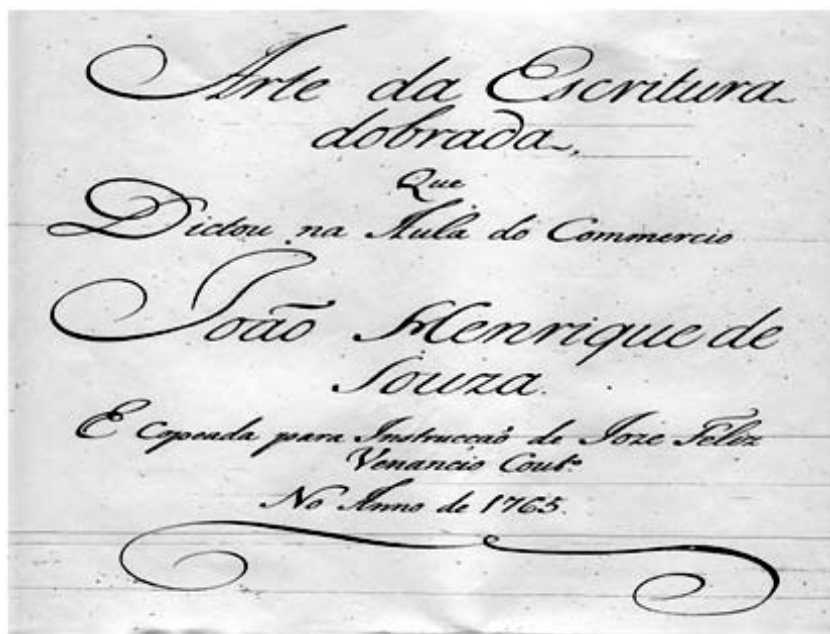 Arte da Escritura
dobrada,
Que
Dictou na Aula do Commercio
João Henrique de
Souza.
E Copeada para Instrucção de Joze Feliz
Venancio Coutº
No Anno de 1765.